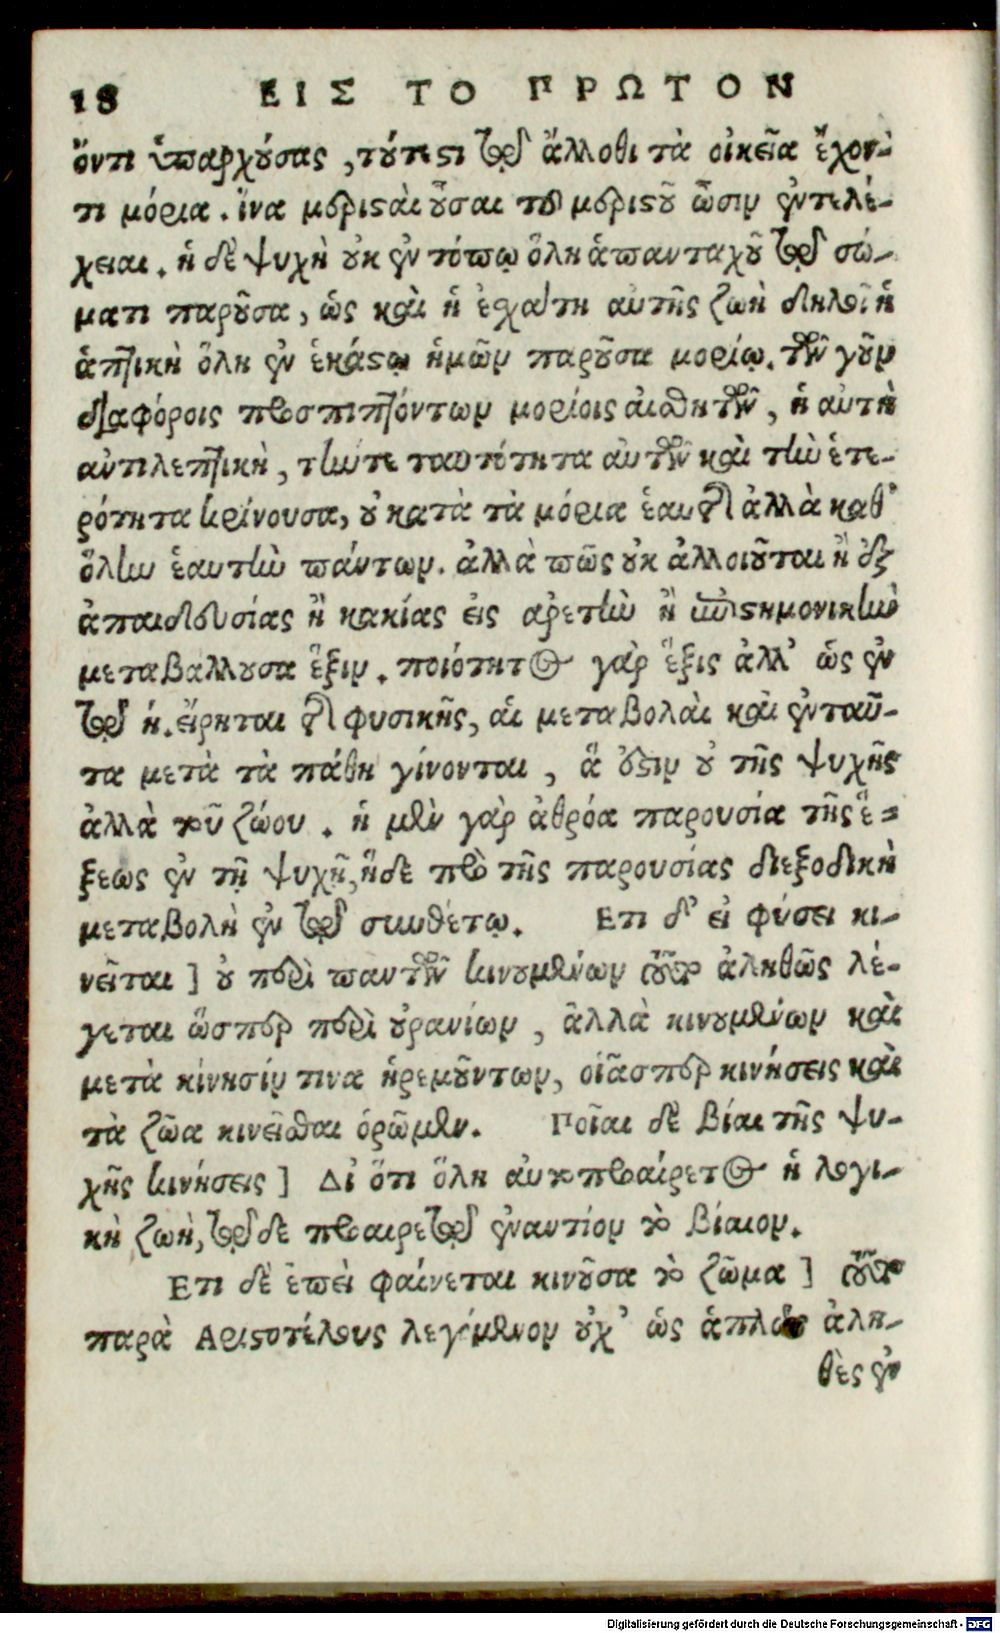 18 ΕΙΣ ΤΟ ΠΡΩΤΟΝ
ὄντι ὑπαρχούσας, τούτεστι τῷ ἄλλοθι τὰ οἰκεῖα ἔχον-
τι μόρια. ἵνα μερισαὶ οὖσαι τοῦ μεριστοῦ ὦσιν ἐντελέ-
χειαι. ἡ δὲ ψυχὴ οὐκ ἐν τόπῳ ὅλη ἁπανταχοῦ τῷ σώ-
ματι παροῦσα, ὡς καὶ ἡ ἐσχάτη αὐτῆς ζωὴ δηλοῖ ἡ
ἁπτικὴ ὅλη ἐν ἑκάστῳ ἡμῶν παροῦσα μορίῳ. τῶν γοῦν
διαφόροις προσπιπτόντων μορίοις αἰσθητῶν, ἡ αὐτὴ
ἀντιλεπτικὴ, τήν τε ταυτότητα αὐτῶν καὶ τὴν ἑτε-
ρότητα κρίνουσα, οὐ κατὰ τὰ μόρια ἑαυτῆς ἀλλὰ καθ᾽
ὅλην ἑαυτὴν πάντων. ἀλλὰ πῶς οὐκ ἀλλοιοῦται ἢ ἐξ
ἀπαιδευσίας ἢ κακίας εἰς ἀρετὴν ἢ ἐπιστημονικὴν
μεταβάλλουσα ἕξιν. ποιότητος γὰρ ἕξις ἀλλ᾽ ὡς ἐν
τῷ η. εἴρηται τῆς φυσικῆς, αἱ μεταβολαὶ καὶ ἐνταῦ-
τα μετὰ τὰ πάθη γίνονται, ἅ ἐστιν οὐ τῆς ψυχῆς
ἀλλὰ τοῦ ζώου. ἡ μὲν γὰρ ἀθρόα παρουσία τῆς ἕ-
ξεως ἐν τῇ ψυχῇ, ἡ δὲ πρὸ τῆς παρουσίας διεξοδικὴ
μεταβολὴ ἐν τῷ συνθέτῳ. Ετι δ᾽ εἰ φύσει κι-
νεῖται ] οὐ περὶ παντῶν κινουμένων τοῦτο ἀληθῶς λέ-
γεται ὥσπερ περὶ οὐρανίων, ἀλλὰ κινουμένων καὶ
μετὰ κίνησίν τινα ἠρεμούντων, οἵασπερ κινήσεις καὶ
τὰ ζῶα κινεῖσθαι ὁρῶμεν. Ποῖαι δὲ βίαι τῆς ψυ-
χῆς κινήσεις ] Δι ὅτι ὅλη αὐτοπροαίρετος ἡ λογι-
κὴ ζωὴ, τῷ δε προαιρετῷ ἐναντίον τὸ βίαιον.
Ετι δὲ ἐπεὶ φαίνεται κινοῦσα τὸ ζῶμα ] τοῦτο
παρὰ Αριστοτέλους λεγόμενον οὐχ᾽ ὡς ἁπλῶς ἀλη-
θὲς ἐν
Digitalisierung gefördert durch die Deutsche Forschungsgemeinschaft - DFG